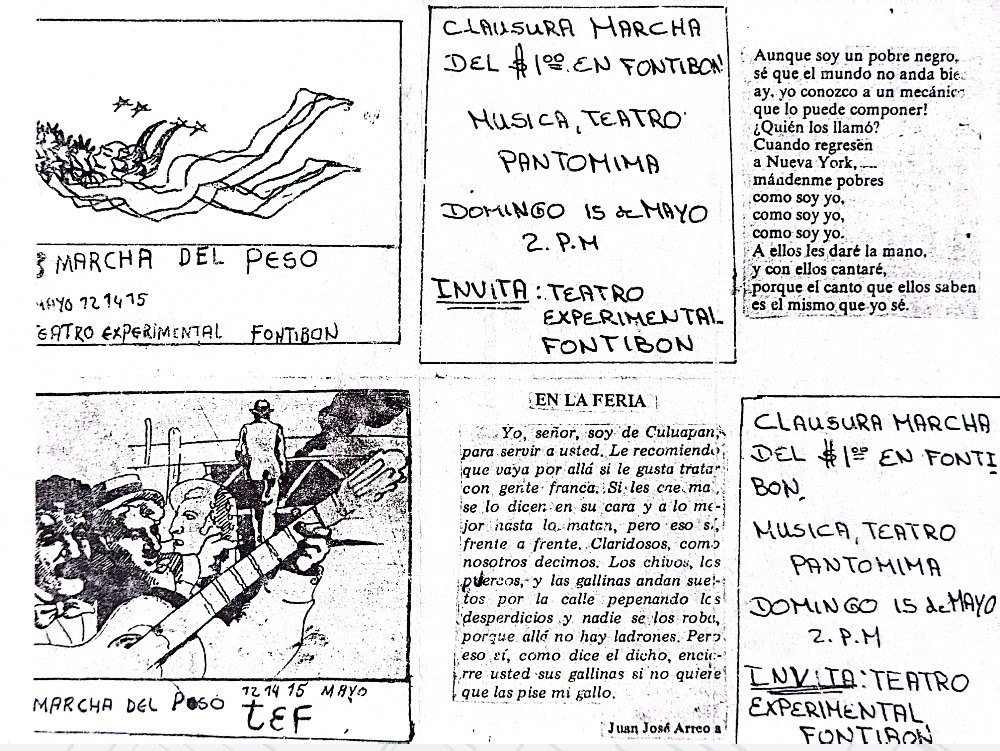 MARCHA DEL PESO
MAYO 12 14 15
EATRO EXPERIMENTAL FONTIBON
CLAUSURA MARCHA
DEL $1oo. EN FONTIBON
MUSICA, TEATRO
PANTOMIMA
DOMINGO 15 de MAYO
2. P.M
INVITA: TEATRO
EXPERIMENTAL
FONTIBON
Aunque soy un pobre negro,
sé que el mundo no anda bie
ay, yo conozco a un mecánic
que lo puede componer!
¿Quién los llamó?
Cuando regresen
a Nueva York,
mándenme pobres
como soy yo,
como soy yo,
como soy yo.
A ellos les daré la mano,
y con ellos cantaré,
porque el canto que ellos saben
es el mismo que yo sé.
MARCHA DEL PESO 12 14 15 MAYO
tEF
EN LA FERIA
Yo, señor, soy de Culuapan,
para servir a usted. Le recomiendo
que vaya por allá si le gusta tratar
con gente franca. Si les cae ma
se lo dicen en su cara y a lo me-
jor hasta lo matan, pero eso sí,
frente a frente. Claridosos, como
nosotros decimos. Los chivos, los
puercos, y las gallinas andan suel-
tos por la calle pepenando los
desperdicios y nadie se los roba,
porque allá no hay ladrones. Pero
eso sí, como dice el dicho, encie-
rre usted sus gallinas si no quiere
que las pise mi gallo.
Juan José Arreo a
CLAUSURA MARCHA
DEL $1oo EN FONTI
BON.
MUSICA, TEATRO
PANTOMIMA
DOMINGO 15 de MAYO
2. P.M
INVITA: TEATRO
EXPERIMENTAL
FONTIBON